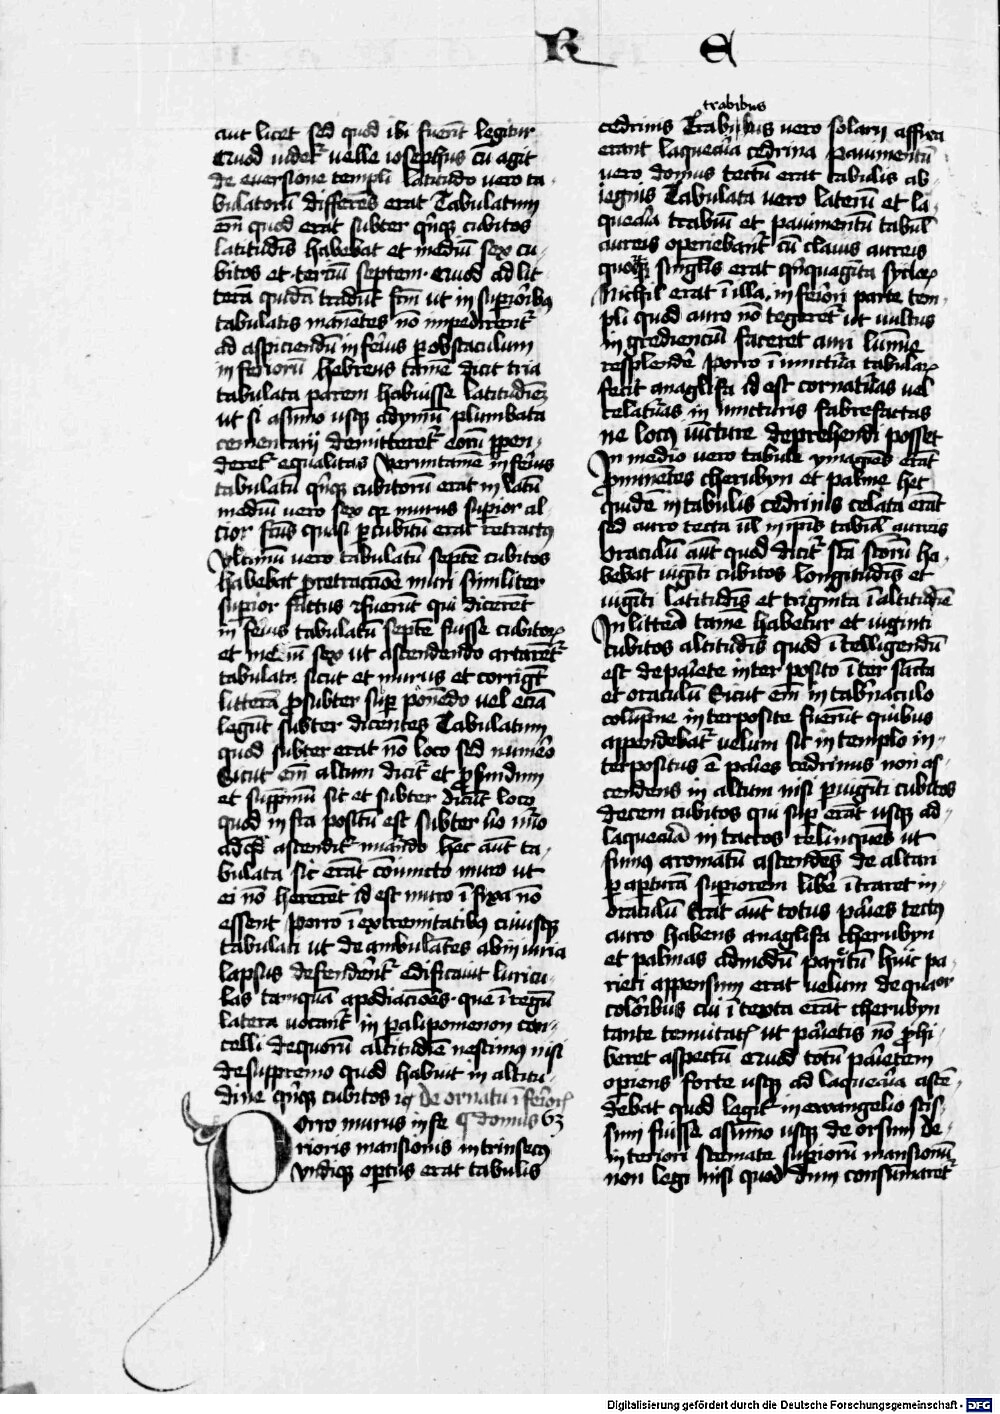 R E
aut licet sed quod ibi fuerīt legitur
Quod videt᷑ velle iosephus cū agit
de eversione templi latitudo vero ta⸗
bulatorū differēs erat Tabulatum
em̄ quod erat subter qn̄q cubitos
latitudīs habebat et mediū sex cu⸗
bitos et terciū septem Quod ad lit
terā quidā tradūt fc̄m ut in supioribus
tabulatis manētes nō impedirent᷑
ad aspiciendū inferius p obstaculum
inferiorū hebreus tamē dicit tria
tabulata parem habuisse latitudinē
ut si a sūmo usq ad ymū plumbata
cementarij demitteret᷑ eorū ppen⸗
deret᷑ equalitas Verumtamē inferius
tabulatū qn̄q cubitorū erat in latū
mediū vero sex qr murus supior al⸗
cior fcūs quasi p cubitū erat retractus
Vltimū vero tabulatū septē cubitos
habebat p retractioē muri similiter
supior factus Fuerūt qui dicerēt
inferius tabulatū septē fuisse cubitor
et mediū sex ut ascendendo artarēt᷑
tabulata sicut et murus et corrigūt
litterā p subter sup ponēdo vel eciā
legūt subter dicentes Tabulatum
quod subter erat nō loco sed numero
Sicut em̄ altum dicit᷑ et pfundum
et suppmū sic et subter dicūt loco
quod infra positū est subter vo nūo
ad qd ascendit᷑ nūando hec aūt ta⸗
bulata sic erāt coniuncto muro ut
ei nō hererēt id est muro īfixa nō
essent Porro ī extremitatibus cuiusq
tabulati ut deambulātes ab iniuria
lapsus defenderēt᷑ edificavit luricu⸗
las tamquā apodiacioēs que ī regū
latera vocant᷑ in palipomenon can⸗
celli de quorū altitudīe nescimus nisi
de suppremo quod habuit in altitu⸗
dine qn̄q cubitos De ornatu īferior
Porro murus infe domus 63
rioris mansionis intrinsecus
vndiq optus erat tabulis
trabibus
cedrinis Trabibus vero solarij affixa
erant laquearia cedrina Pavimentū
vero domus tectū erat tabulis ab⸗
iegnis Tabulata vero laterū et la⸗
quearia trabiū et pavimentū tabul
aureis operiebant᷑ cū clavis aureis
quorū singulis erat qn̄quaginta siclor
Nichil erat ī illa inferiori parte tem⸗
pli quod auro nō tegeret᷑ ut vultus
ingrediencium faceret auri lumīe
resplendē Porro ī iunctura tabular
fecit anaglifa id est tornaturas vel
celaturas in iuncturis fabrefactas
ne locus iūcture deprehendi posset
In medio vero tabule ymagines erāt
pminētes cherubyn et palme hec
quidē in tabulis cedrinis celata erāt
sed auro tecta vl in ipis tabul aureis
Oraculū aūt quod dicit᷑ scā scōrū ha⸗
bebat viginti cubitos longitudīs et
viginti latitudīs et triginta ī altitudīe
In litterā tamē habetur et viginti
cubitos altitudīs quod ītelligendū
est de pariete interposito īter sancta
et oraculū Sicut em̄ in tabnaculo
columpne interposite fuerūt quibus
appendebat᷑ velum sic in templo in⸗
terpositus ē paries cedrinus non as⸗
cendens in altum nisi p viginti cubitos
decem cubitos qui sup erāt usq ad
laquearia intactos relinquēs ut
fumus aromatū ascendēs de altari
p apturā superiorem libe ītraret in
oraculū Erat aūt totus paries tectus
auro habens anaglifa cherubyn
et palmas admodū parietū huic pa⸗
rieti appensum erat velum de quatuor
coloribus cui ītexta erāt cherubyn
tante tenuitatis ut parietis nō phi⸗
beret aspectū Quod totū parietem
operiens forte usq ad laquearia ascē⸗
debat quod legit᷑ in ewangelio scis⸗
sum fuisse a sūmo usq deorsum De
interiori scemate superiorū mansionū
non legi nisi quod dum consumaret᷑
Digitalisierung gefördert durch die Deutsche Forschungsgemeinschaft - DFG